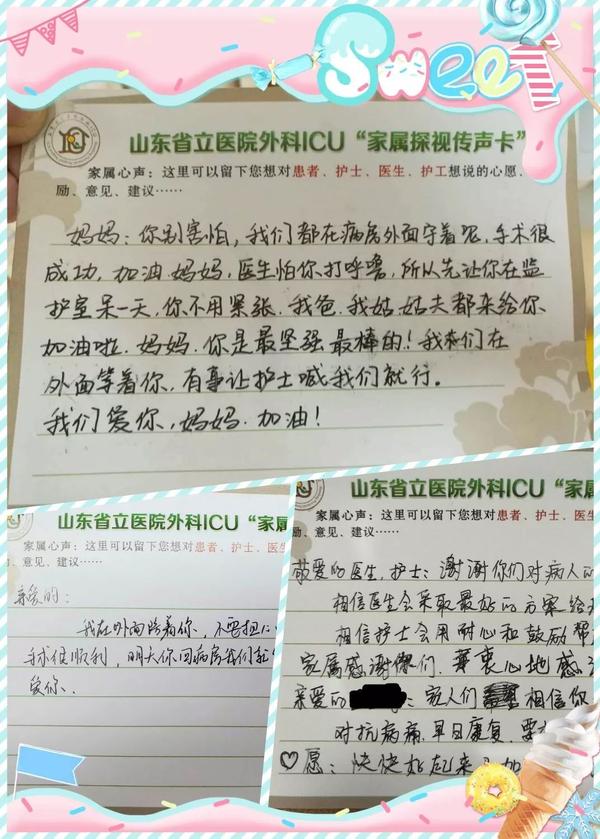 Sweet
山东省立医院外科ICU“家属探视传声卡”
家属心声：这里可以留下您想对患者、护士、医生、护工想说的心愿、
励、意见、建议……
妈妈：你别害怕，我们都在病房外面守着呢，手术很
成功，加油妈妈，医生怕你打呼噜，所以先让你在监
护室呆一天，你不用紧张，我爸、我姑、姑夫都来给你
加油啦，妈妈，你是最坚强最棒的！我们在
外面等着你，有事让护士喊我们就行。
我们爱你，妈妈，加油！
山东省立医院外科ICU“家属
家属心声：这里可以留下您想对患者、护士、医生
励、意见、建议……
亲爱的：
我在外面陪着你，不要担
手术很顺利，明天你回病房我们就
爱你.
山东省立医院外科ICU“家
家属心声：这里可以留下您想对患者、护
励、意见、建议……
敬爱的医生，护士：谢谢你们对病人的
相信医生会采取最好的方案给
相信护士会用耐心和鼓励帮
家属感谢你们，衷心地感
亲爱的 ：家人们 相信你
对抗病痛，早日康复，要
愿：快快好起来 加